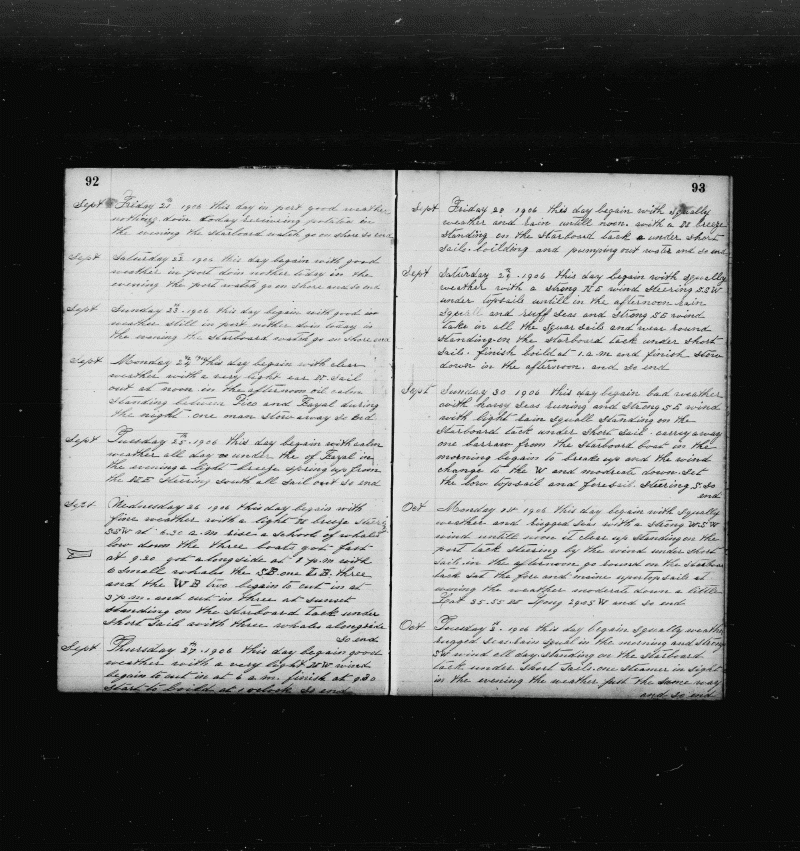 92
Sept Friday 21 1906 this day in port good weather
nothing doin today receiving potatia in
the evening the Starboard watch go on shore so end
Sept Saturday 22 1906 this day begain with good
weather in port doin nother today in the
evening the port watch go on shore and so end
Sept Sunday 23 1906 this day begain with good
weather still in port nother doin today in
the evening the Starboard watch go on shore end
Sept Monday 24 this day begain with clear
weather with a very light ear sail
out at noon in the afternoon calm
Standing between Pico and Fayal during
the night one man stowaway so end
Sept Tuesday 25 1906 this day begain with calm
weather all day under the of Fayal in
the evening a light breeze spring up from
the NE Steering South all sail out so end
Sept Wednesday 26 1906 this day begain with
fine weather with a light breeze steering
SSW at 6.30 a.m. rise a school of whales
low down the three boats got fast
at 9.20 got alongside at 1 p.m with
6 Small whales the SB one LB three
and the WB two begain to cut in at
3 p.m. and cut in three at sunset
Standing on the Starboard tack under
Short Sail with three whales alongside
so end
Sept Thursday 27 1906 this day begain good
weather with a very light wind
begain to cut in at 6 a.m. finish at 9.30
Start to boild at 1 oclock so end
93
Sept Friday 28 1906 this day begain with Squally
weather and rain untill noon with a breeze
Standing on the Starboard tack under Short
Sail boilding and pumping out water and so end
Sept Saturday 29 1906 this day begain with Squally
weather with a Strong NE wind Steering SSW
under topsails untill in the afternoon rain
Squall and ruff Seas and Strong SE wind
take in all the Squar Sails and wear round
Standing on the Starboard tack under Short
Sail finish boild at 1 a.m. and finish Stow
down in the afternoon and so end
Sept Sunday 30 1906 this day begain bad weather
with heavy Seas runing and Strong SE wind
with light rain Squall Standing on the
Starboard tack under Short Sail carry away
one barraw from the Starboard boat in the
morning begain to breake up and the wind
change to the W and moderate down Set
the low topsail and foresail Steering S. so
end
Oct Monday 1st 1906 this day begain with Squally
weather and rugged Seas with a Strong WSW
wind untill noon it clear up Standing on the
port tack Steering by the wind under Short
Sail in the afternoon go round on the Starboar
tack Set the fore and maine uper topsails at
evening the weather moderate down a little
Lat 35.55 Long 29.05 W and so end
Oct Tuesday 2 1906 this day begain Squally weather
rugged Seas rain Squal in the morning and Strong
SW wind all day Standing on the Starboard
tack under Short Sails one Steamer in Sight
in the evening the weather just the same way
and so end